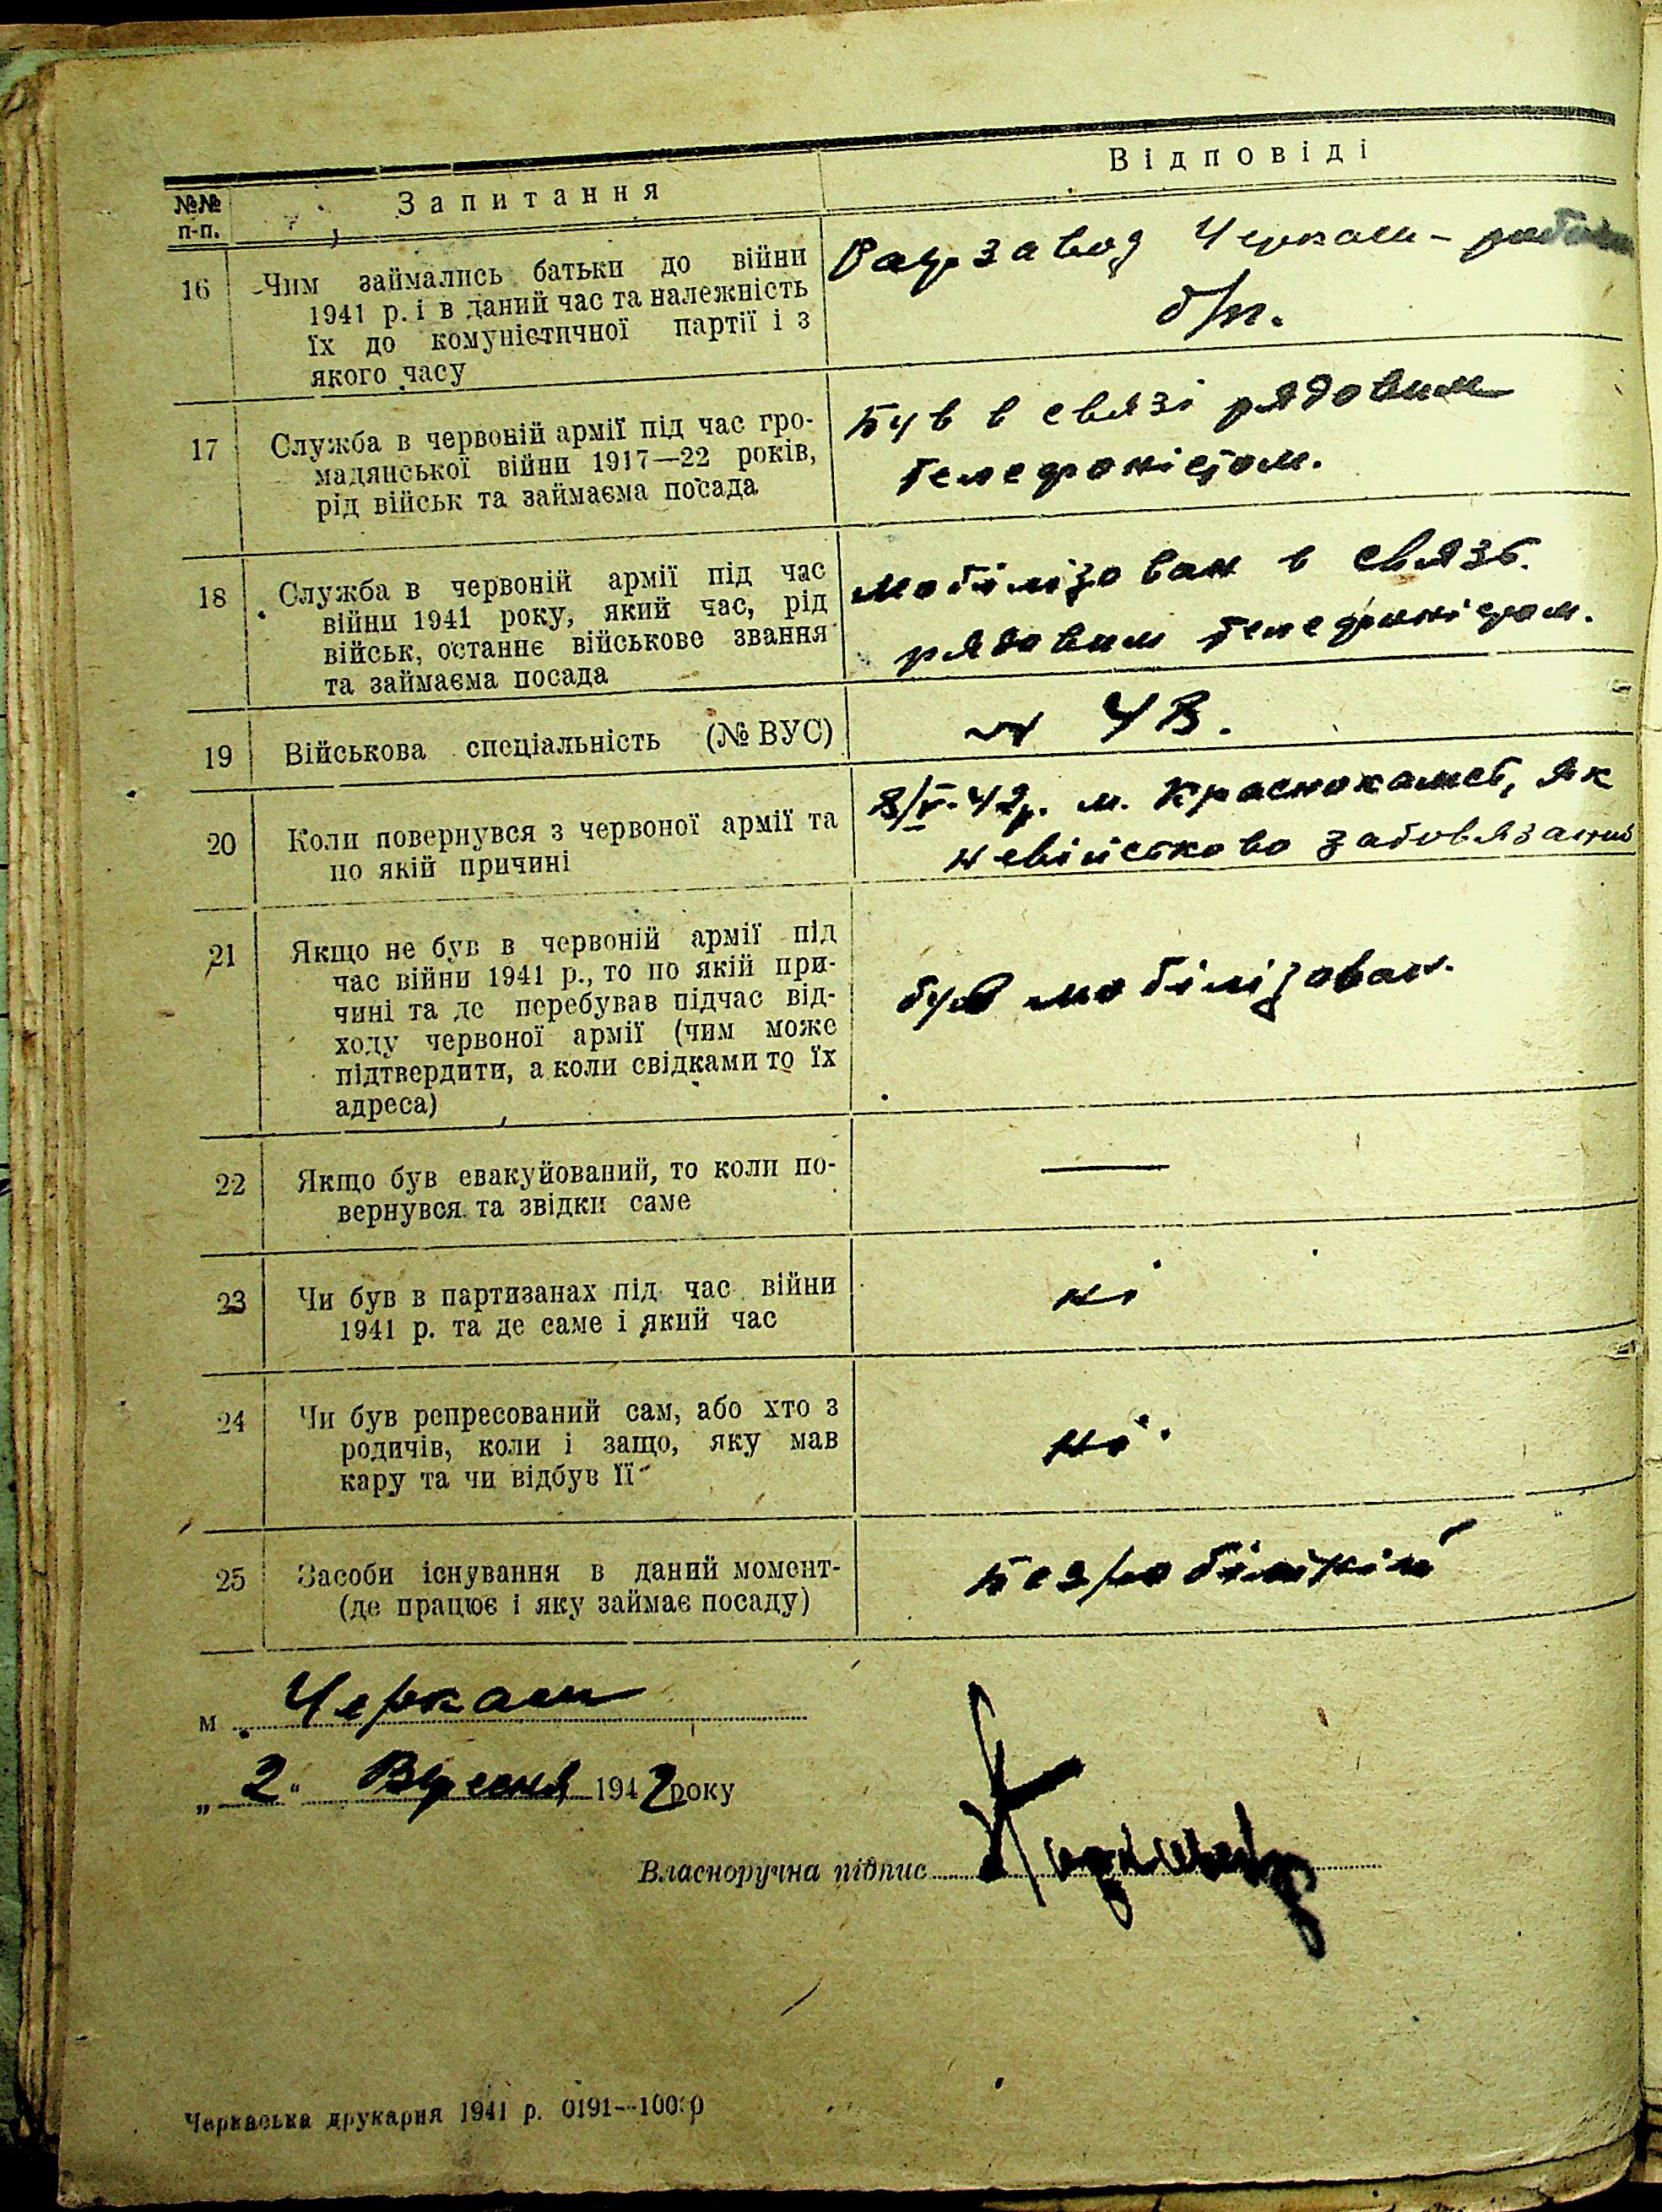 №№ п-п.
Запитання
Відповіді
16
Чим займались батьки до війни
1941 р. і в даний час та належність
їх до комуністичної партії і з
якого часу
завод Черкаси –
б/п.
17
Служба в червоній армії під час гро-
мадянської війни 1917—22 років,
рід військ та займаєма посада
Був в связі рядовим
телефоністом.
18
Служба в червоній армії під час
війни 1941 року, який час, рід
військ, останнє військове звання
та займаєма посада
мобілізован в связь.
рядовим телефоністом.
19
Військова спеціальність (№ ВУС)
20
Коли повернувся з червоної армії та
по якій причині
42р. м. Краснокамськ, як
невійськово забовязаний
21
Якщо не був в червоній армії під
час війни 1941 р., то по якій при-
чині та де перебував підчас від-
ходу червоної армії (чим може
підтвердити, а коли свідками то їх
адреса)
був мобілізован.
22
Якщо був евакуйований, то коли по-
вернувся та звідки саме
—
23
Чи був в партизанах під час війни
1941 р. та де саме і який час
ні
24
Чи був репресований сам, або хто з
родичів, коли і защо, яку мав
кару та чи відбув її
ні.
25
Засоби існування в даний момент-
(де працює і яку займає посаду)
безробітній
м. Черкаси
„2" Вересня 1942 року
Власноручна підпис
Черкаська друкарня 1941 р. 0191--1000